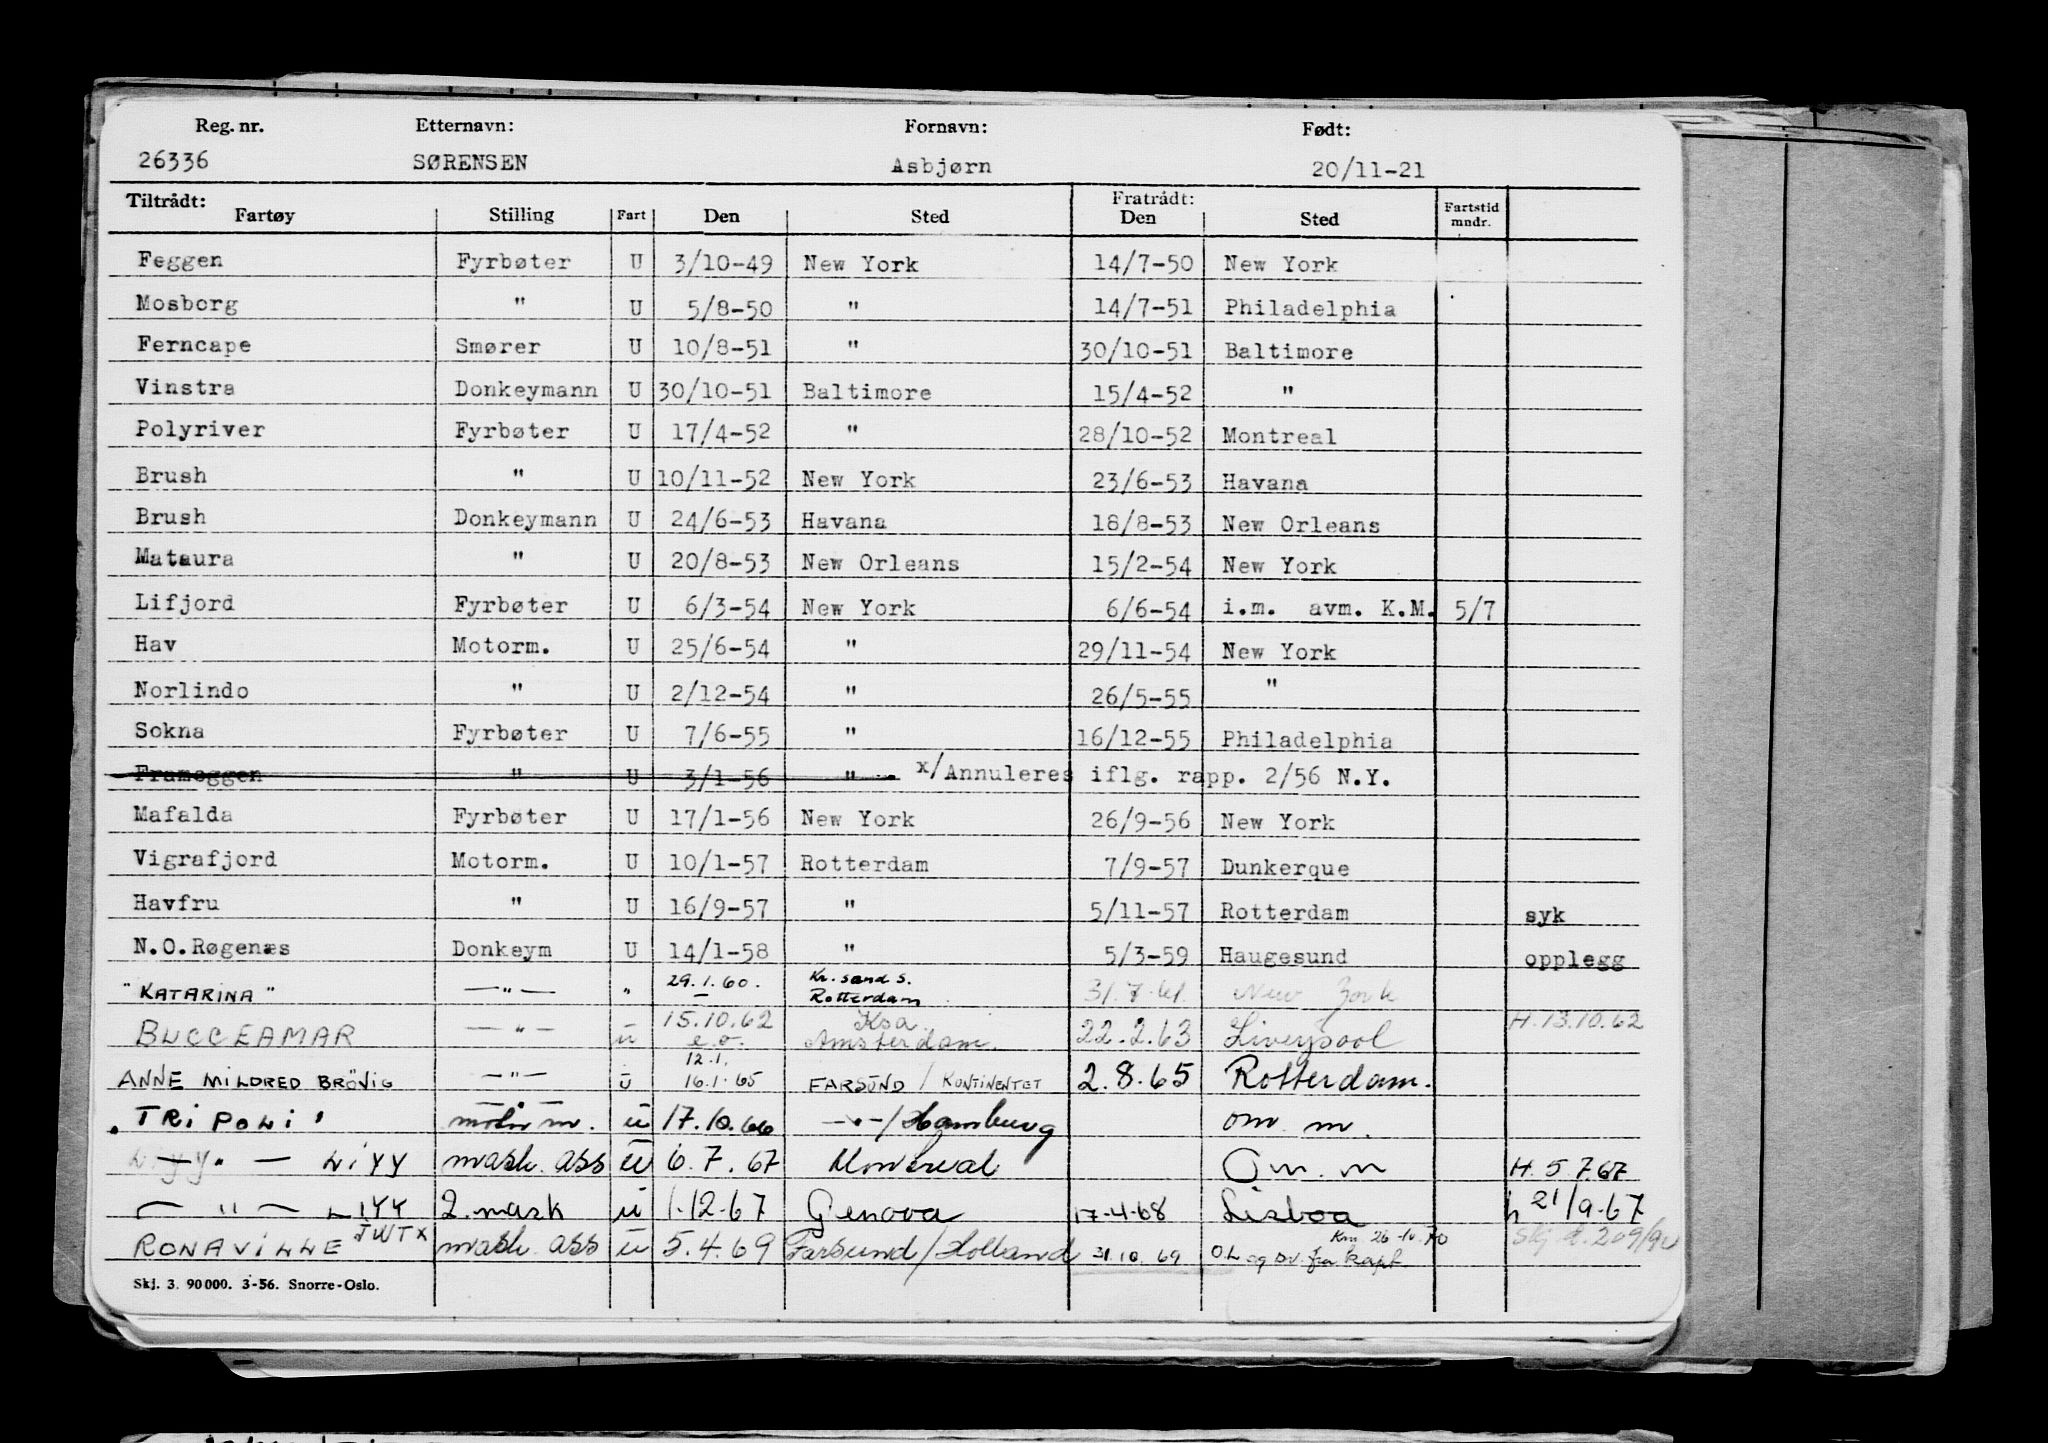 Reg. nr. Etternavn: Fornavn: Født:
26336 SØRENSEN Asbjørn 20/11-21
Tiltrådt: Fratrådt:
Fartøy Stilling Fart Den Sted Den Sted Fartstid mndr.
Feggen Fyrbøter U 3/10-49 New York 14/7-50 New York
Mosborg " U 5/8-50 " 14/7-51 Philadelphia
Ferncape Smører U 10/8-51 " 30/10-51 Baltimore
Vinstra Donkeymann U 30/10-51 Baltimore 15/4-52 "
Polyriver Fyrbøter U 17/4-52 " 28/10-52 Montreal
Brush " U 10/11-52 New York 23/6-53 Havana
Brush Donkeymann U 24/6-53 Havana 18/8-53 New Orleans
Mataura " U 20/8-53 New Orleans 15/2-54 New York
Lifjord Fyrbøter U 6/3-54 New York 6/6-54 i.m. avm. K.M. 5/7
Hav Motorm. U 25/6-54 " 29/11-54 New York
Norlindo " U 2/12-54 " 26/5-55 "
Sokna Fyrbøter U 7/6-55 " 16/12-55 Philadelphia
Frameggen " U 3/1-56 " x/Annuleres iflg. rapp. 2/56 N.Y.
Mafalda Fyrbøter U 17/1-56 New York 26/9-56 New York
Vigrafjord Motorm. U 10/1-57 Rotterdam 7/9-57 Dunkerque
Havfru " U 16/9-57 " 5/11-57 Rotterdam syk
N.O.Røgenæs Donkeym U 14/1-58 " 5/3-59 Haugesund opplegg
"KATARINA" —"— " 29.1.60. Kr.sand S. Rotterdam 31.7.61. New York
BUCCEAMAR —"— u 15.10.62 e.o. Ksa. Amsterdam. 22.2.63 Liverpool H.13.10.62
ANNE MILDRED BRÖVIG —"— u 12.1. 16.1.65 FARSUND / KONTINENTET 2.8.65 Rotterdam.
"TRIPOLI" motorm. u 17.10.66 —"—/Hamburg om. m.
— " — LIYY mask. ass u 6.7.67 Montreal Om. m H.5.7.67
— " — LIYY 2. mask u 1.12.67 Genova 17-4-68 Lisboa h 21/9-67
RONAVILLE JWTX mask ass u 5.4.69 Farsund/Holland 31.10.69 O.L og DV. fra kapt Km 26-10.70
Skj. 3. 90000. 3-56. Snorre-Oslo.